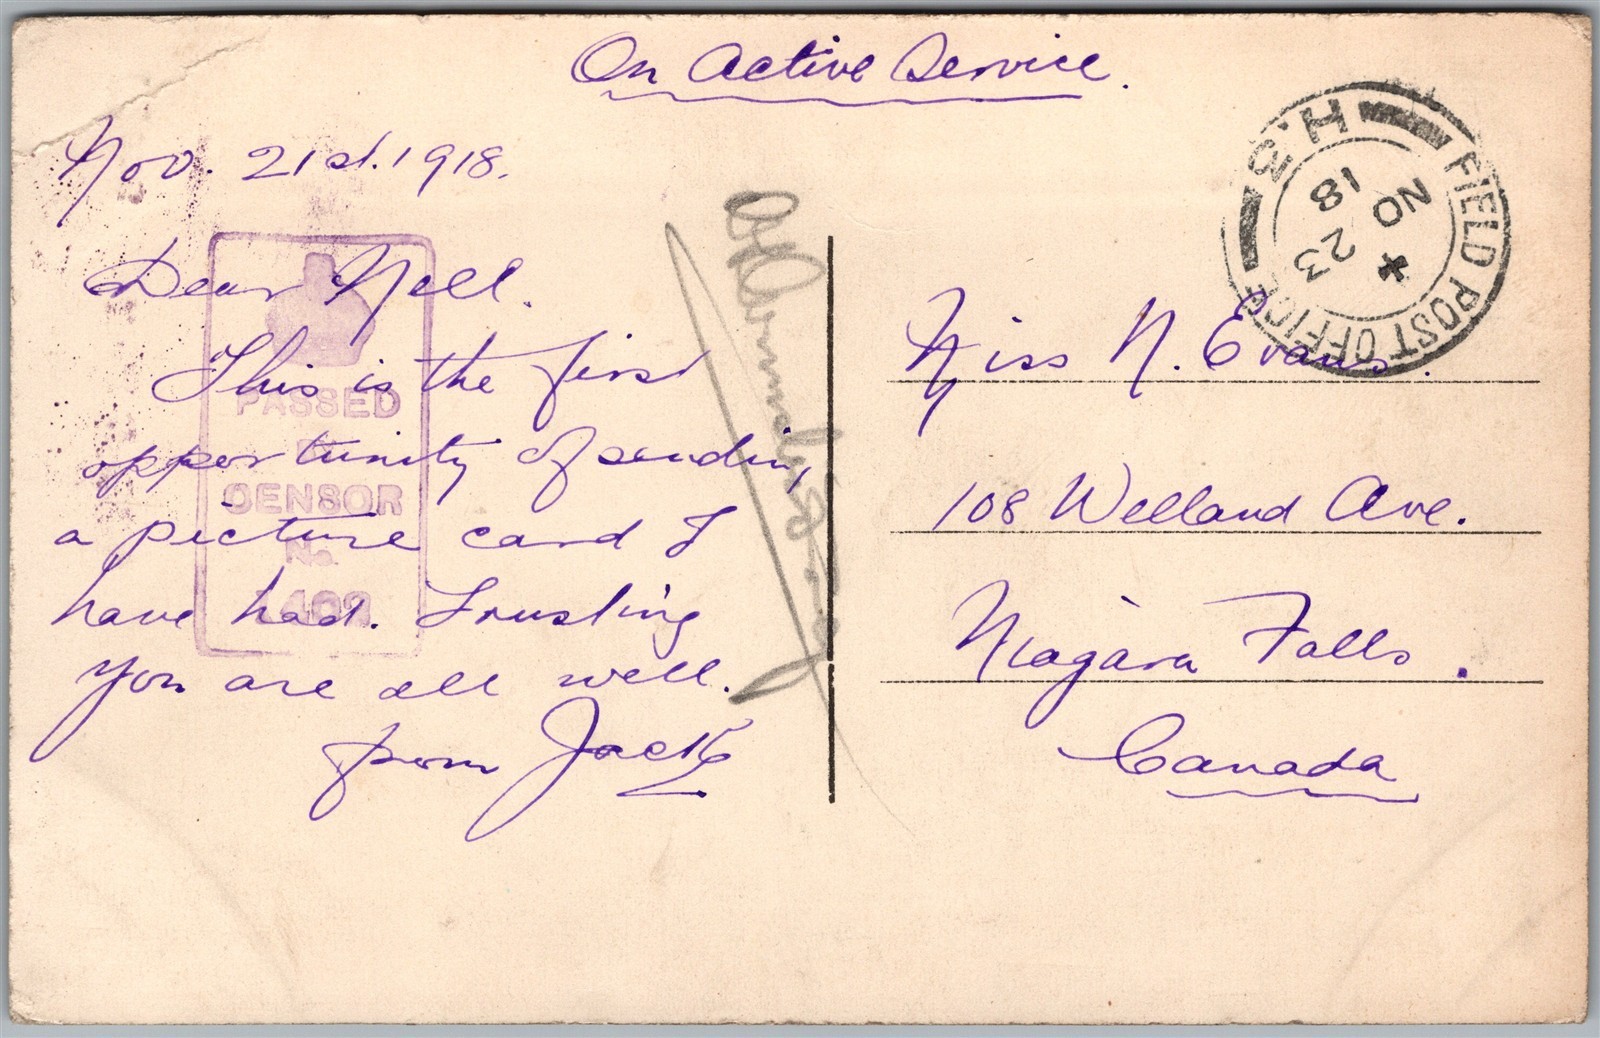 On Active Service.
Nov. 21st. 1918.
Dear Nell.
This is the first
opportunity of sending
a picture card I
have had. Trusting
you are all well.
from Jack
PASSED
CENSOR
No.
FIELD POST OFFICE
H.3
*
23
NO
18
Miss N. Evans.
108 Welland Ave.
Niagara Falls.
Canada